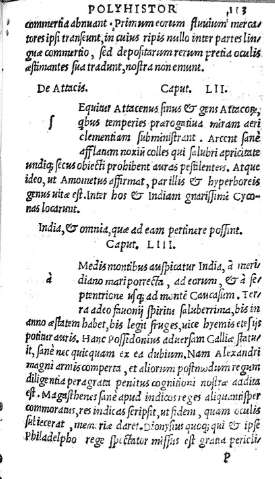 POLYHISTOR 113
commertia abnuant. Primum eorum fluuium merca
tores ipsi transeunt, in cuius ripis nullo inter partes lin
guæ commertio, sed depositarum rerum pretia oculis
æstimantes sua tradunt, nostra non emunt.
De Attacis. Caput. LII.
Equitur Attacenus sinus & gens Attacoꝝ,
qbus temperies prærogatiua miram aeri
clementiam subministrant. Arcent sanè
afflatum noxiũ colles qui salubri apricitate
undiqꝫ secus obiecti prohibent auras pestilentes. Atque
ideo, ut Amometus affirmat, par illis & hyperboreis
genus uitæ est. Inter hos & Indiam gnarissimi Cyco-
nas locarunt.
India, & omnia, quæ ad eam pertinere possint.
Caput. LIII.
Medis montibus auspicatur India, à meri
à diano mari porrecta, ad eorum, & à se
ptentrione usqꝫ ad montē Caucasum. Ter
ra adeo fauonij spiritu saluberrima, bis in
anno æstatem habet, bis legit fruges, uice hyemis etesijs
potitur auris. Hanc Possidonius aduersam Galliæ statu
it, sanè nec quicquam ex ea dubium. Nam Alexandri
magni armis comperta, et aliorum postmodum regum
diligentia peragrata penitus cognitioni nostræ addita
est. Magasthenes sanè apud indicos reges aliquantisper
commoratus, res indicas scripsit, ut fidem, quam oculis
subiecerat, memoriæ daret. Dionysius quoqꝫ; qui & ipse
Philadelpho rege spectator missus est gratia periclis
P